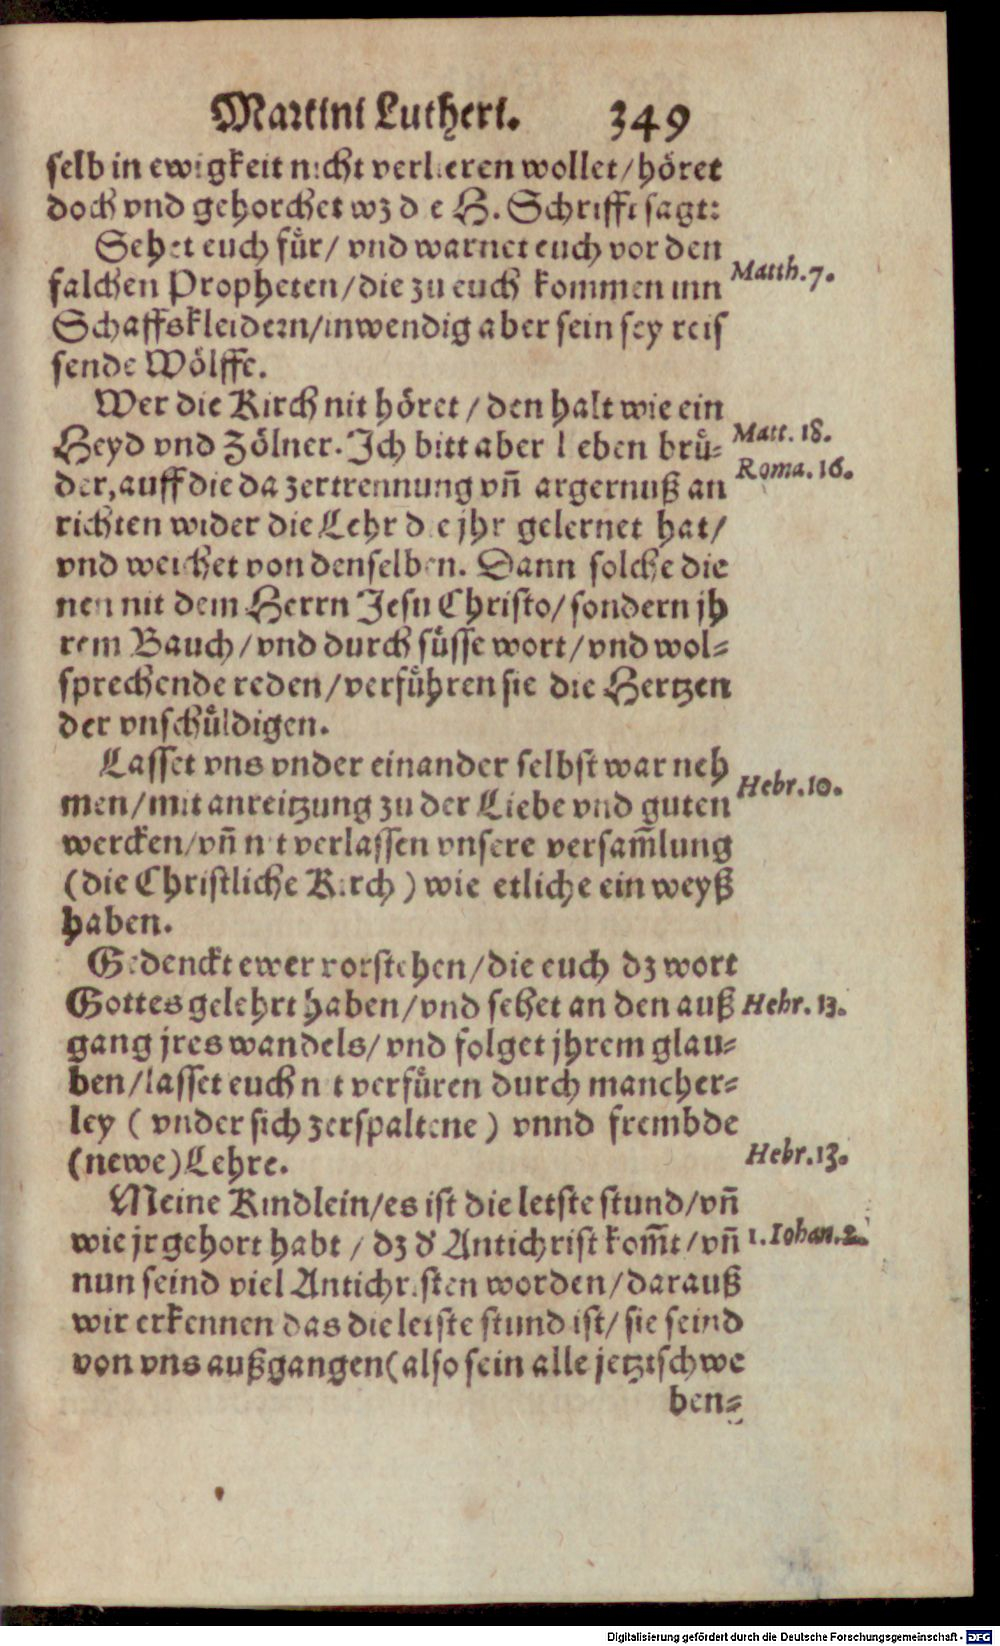 Martini Lutheri. 349
selb in ewigkeit nicht verlieren wollet/ höret
doch vnd gehorchet wz die H. Schrifft sagt:
Sehet euch fuͤr/ vnd warnet euch vor den
falchen Propheten/ die zu euch kommen inn
Matth. 7.
Schaffskleidern/ inwendig aber sein sey reis
sende Wölffe.
Wer die Kirch nit höret / den halt wie ein
Heyd vnd Zölner. Ich bitt aber lieben bruͤ-
Matt. 18.
Roma. 16.
der, auff die da zertrennung vn̄ argernuß an
richten wider die Lehr die jhr gelernet hat/
vnd weichet von denselben. Dann solche die
nen nit dem Herrn Jesu Christo/ sondern jh
rem Bauch/ vnd durch suͤsse wort/ vnd wol-
sprechende reden/ verfuͤhren sie die Hertzen
der vnschuͤldigen.
Lasset vns vnder einander selbst war neh
men/ mit anreitzung zu der Liebe vnd guten
Hebr. 10.
wercken/ vn̄ nit verlassen vnsere versam̄lung
(die Christliche Kirch) wie etliche ein weyß
haben.
Gedenckt ewer vorstehen/ die euch dz wort
Gottes gelehrt haben/ vnd sehet an den auß
Hebr. 13.
gang jres wandels/ vnd folget jhrem glau-
ben/ lasset euch nit verfuͤren durch mancher-
ley ( vnder sich zerspaltene) vnnd frembde
(newe) Lehre.
Hebr. 13.
Meine Kindlein/ es ist die letste stund/ vn̄
wie jr gehort habt / dz d' Antichrist kom̄t/ vn̄
1. Iohan. 2.
nun seind viel Antichristen worden/ darauß
wir erkennen das die letste stund ist/ sie seind
von vns außgangen (also sein alle jetzt schwe
ben-
Digitalisierung gefördert durch die Deutsche Forschungsgemeinschaft - DFG